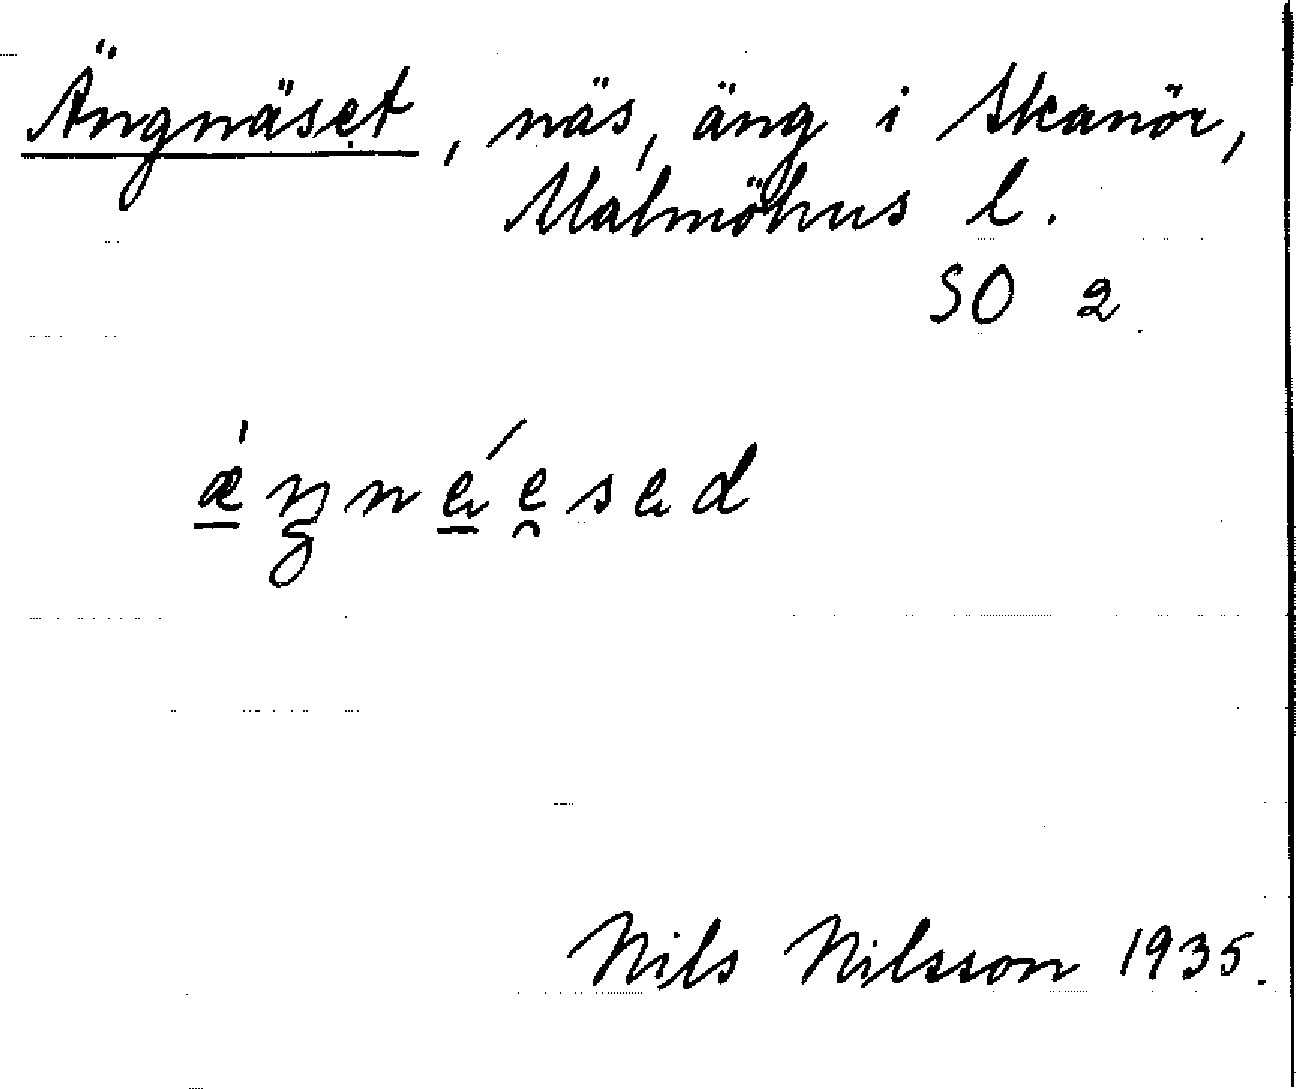 Ängnäset, näs, äng i Skanör,
Malmöhus l.
SO 2.
ǽ̲ŋné̲e̯sed
Nils Nilsson 1935.